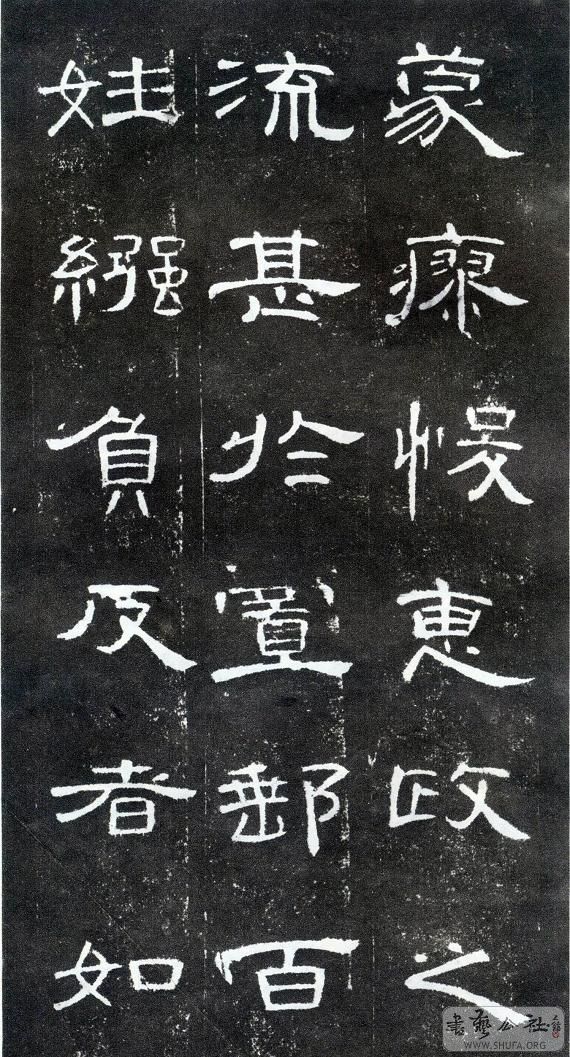 蒙瘳悛惠政之
流甚於置郵百
姓繦負反者如
書藝公社
WWW.SHUFA.ORG